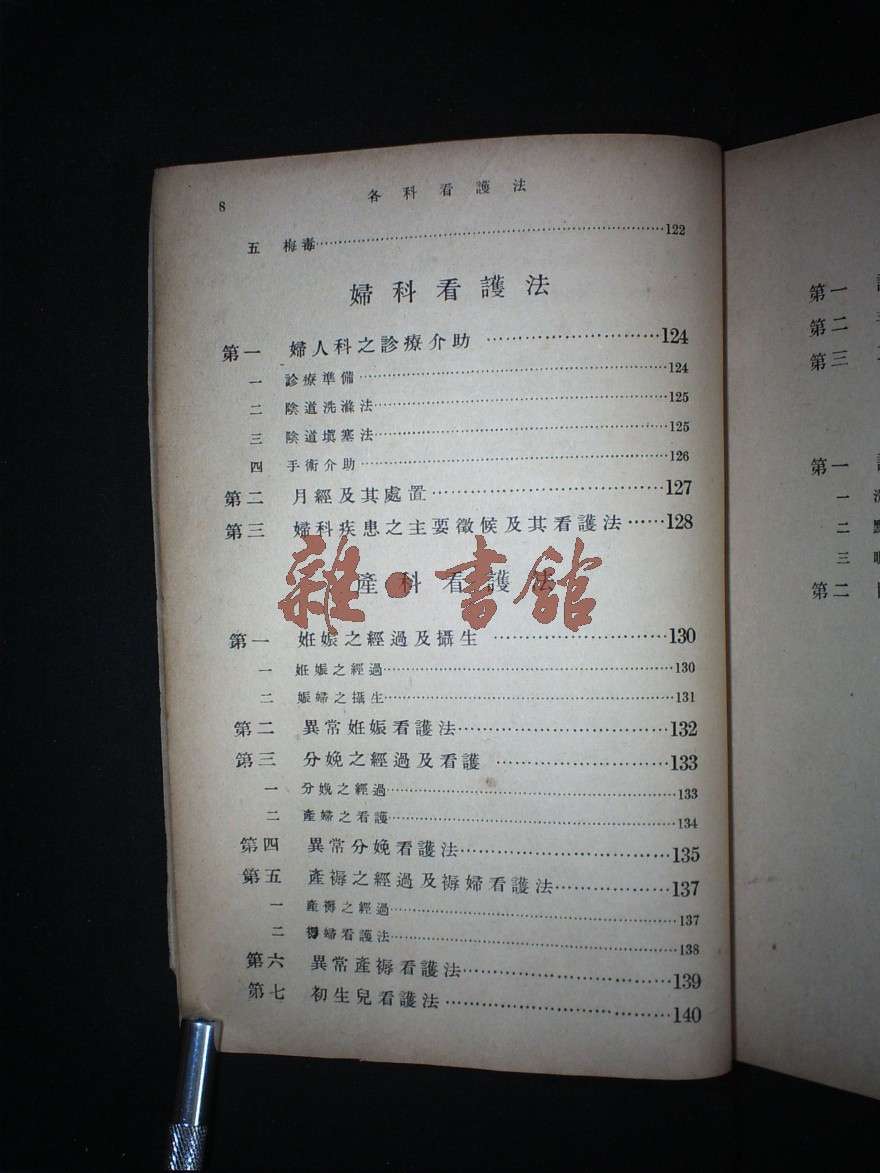 8 各科看護法
五 梅毒……122
婦科看護法
第一 婦人科之診療介助……124
一 診療準備……124
二 陰道洗滌法……125
三 陰道塡塞法……125
四 手術介助……126
第二 月經及其處置……127
第三 婦科疾患之主要徵候及其看護法……128
產科看護法
雜·書館
第一 姙娠之經過及攝生……130
一 姙娠之經過……130
二 娠婦之攝生……131
第二 異常姙娠看護法……132
第三 分娩之經過及看護……133
一 分娩之經過……133
二 產婦之看護……134
第四 異常分娩看護法……135
第五 產褥之經過及褥婦看護法……137
一 產褥之經過……137
二 褥婦看護法……138
第六 異常產褥看護法……139
第七 初生兒看護法……140
第一
第二
第三
第一
一
二
三
第二